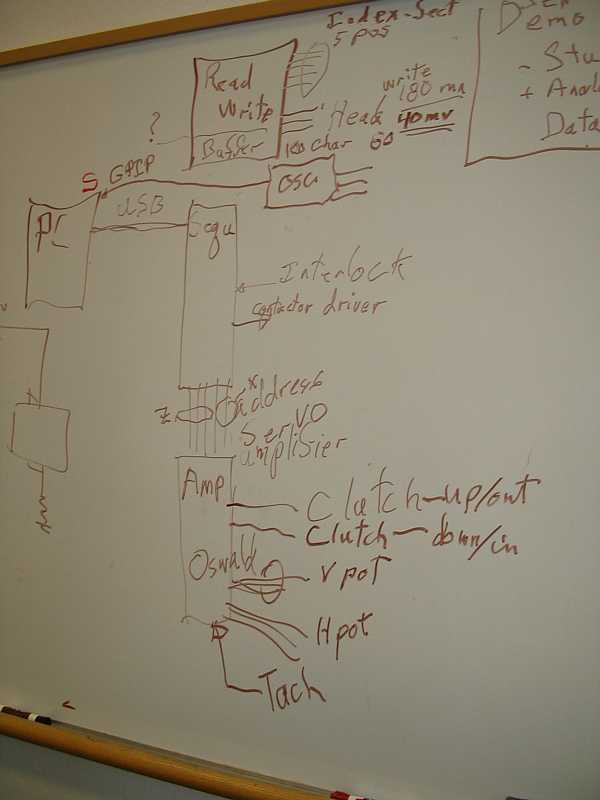 Index-Sect
5 pos
Read
Write
Buffer
?
write
180 ma
Head
40mv
100 char
60
Demo
- Stu
+ Anal
Data
S
GPIP
OSC
PC
USB
Sequ
Interlock
contactor driver
address
Servo
amplisier
Amp
Clutch-up/out
Clutch-down/in
Oswald
V pot
H pot
Tach